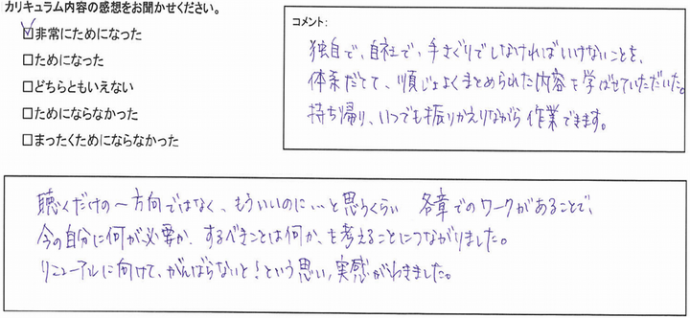 カリキュラム内容の感想をお聞かせください。
☑非常にためになった
□ためになった
□どちらともいえない
□ためにならなかった
□まったくためにならなかった
コメント:
独自で、自社で、手さぐりでしなければいけないことを、
体系だてて、順じょよくまとめられた内容を学ばせていただいた。
持ち帰り、いつでも振りかえりながら作業できます。
聴くだけの一方向ではなく、もういいのに…と思うくらい 各章でのワークがあることで、
今の自分に何が必要か、するべきことは何か、を考えることにつながりました。
リニューアルに向けて、がんばらないと!という思い、実感がわきました。